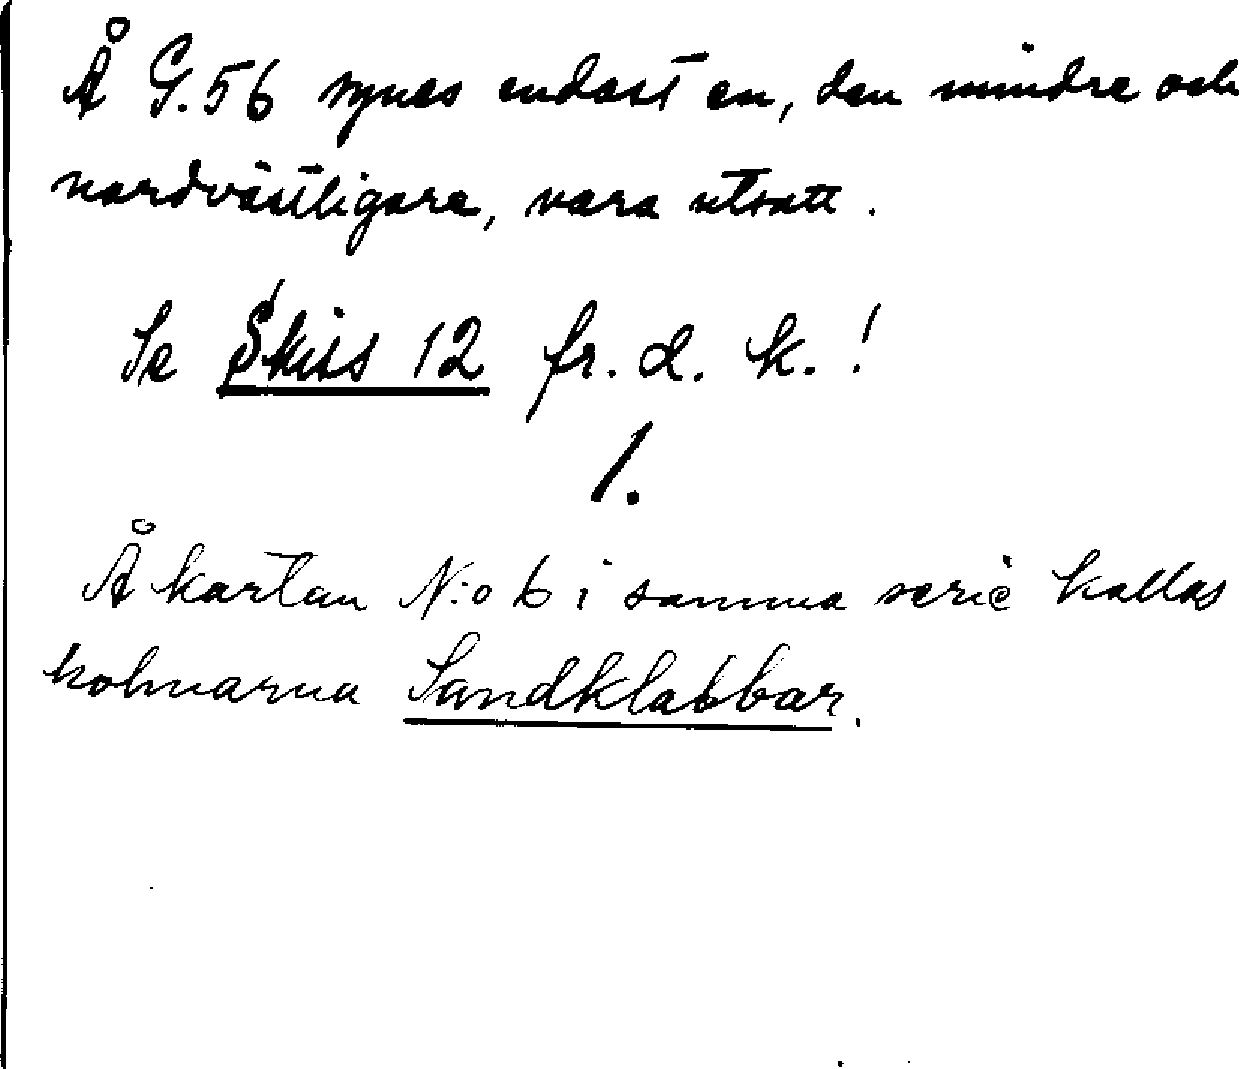 Å G. 56 synes endast en, den mindre och
nordvästligare, vara utsatt.
Se Skiss 12 fr. d. k.!
1.
Å kartan N:o 6 i samma serie kallas
holmarna Sandklabbar.